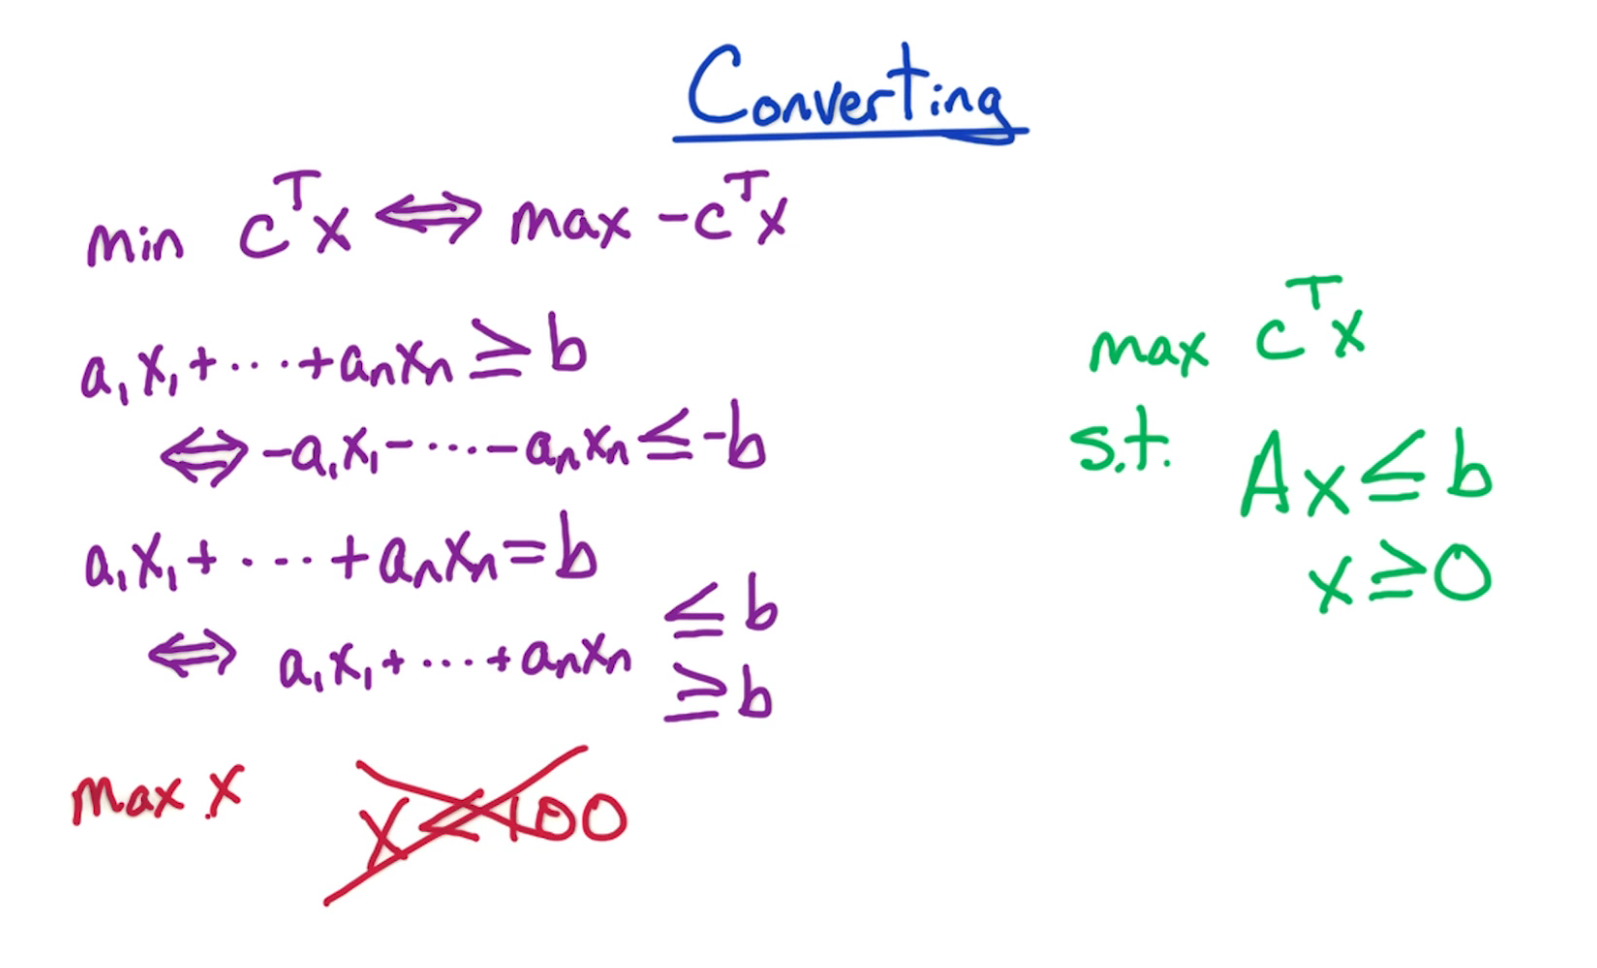 Converting
min c^T x ⟺ max -c^T x
a₁x₁ + ··· + aₙxₙ ≥ b
⟺ -a₁x₁ - ··· - aₙxₙ ≤ -b
a₁x₁ + ··· + aₙxₙ = b
⟺ a₁x₁ + ···· + aₙxₙ ≤ b
≥ b
max x
x < 100
max c^T x
s.t. Ax ≤ b
x ≥ 0